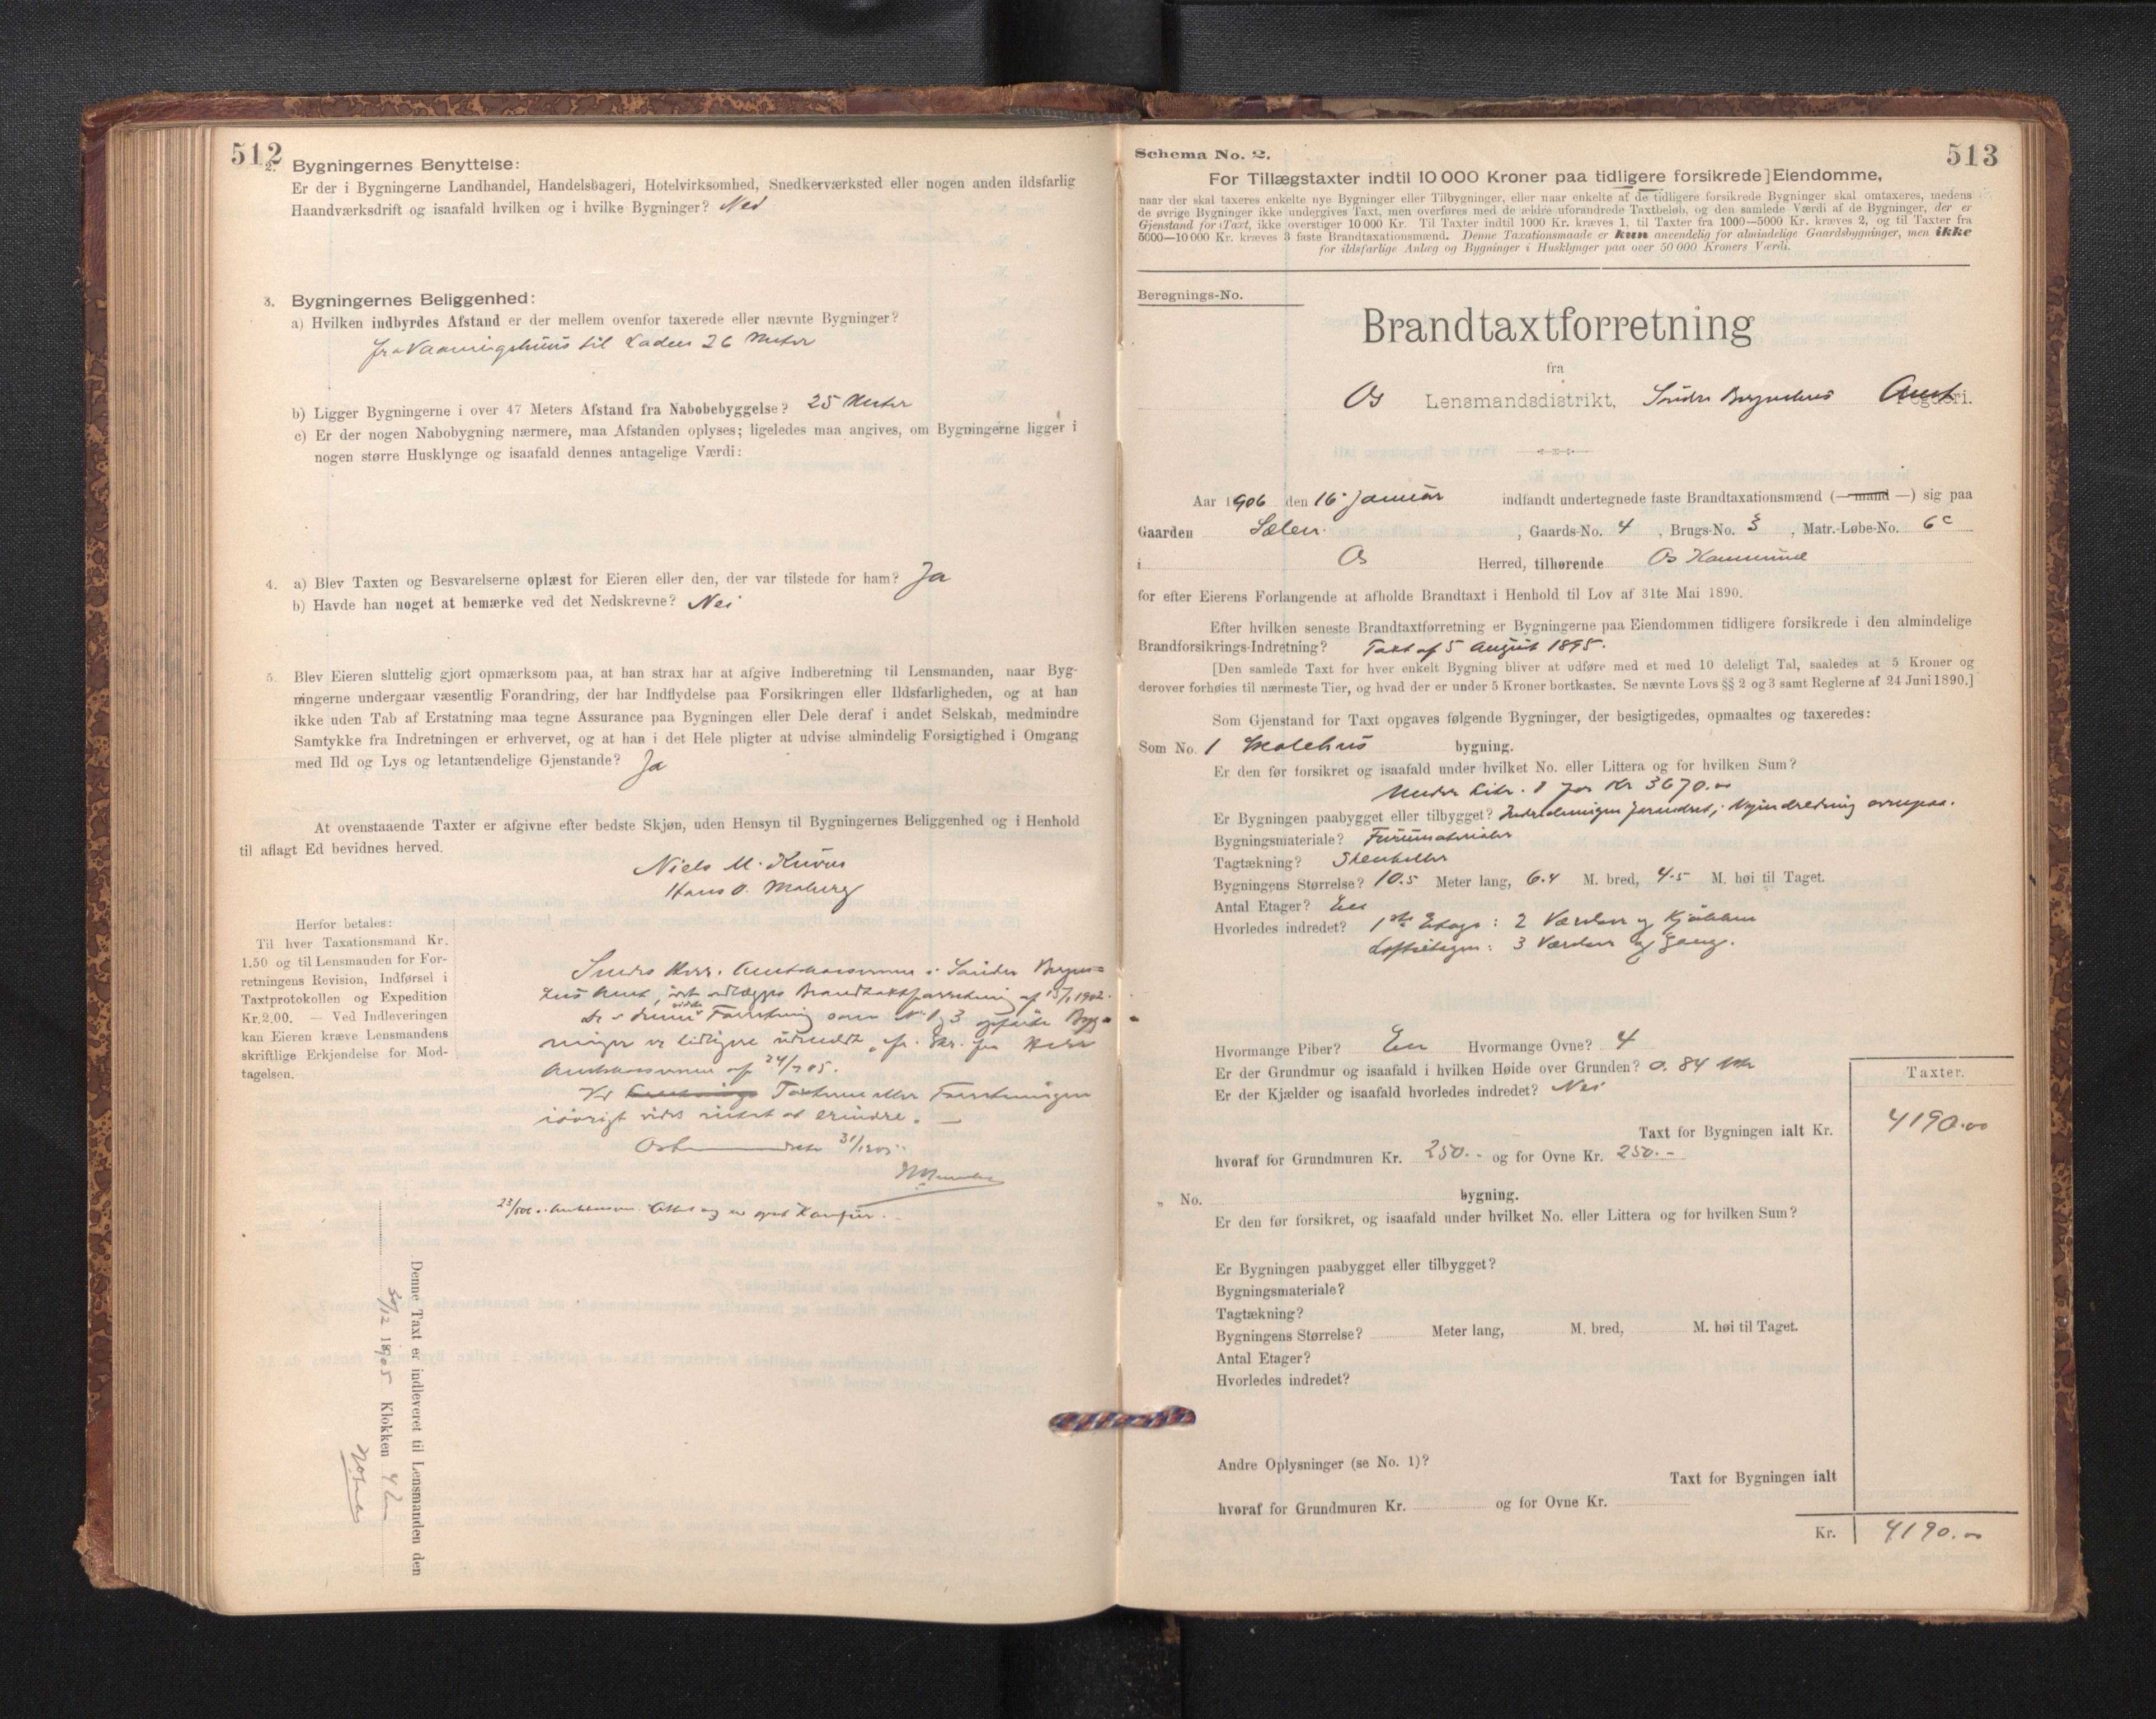 512
2. Bygningernes Benyttelse:
Er der i Bygningerne Landhandel, Handelsbageri, Hotelvirksomhed, Snedkerværksted eller nogen anden ildsfarlig
Haandværksdrift og isaafald hvilken og i hvilke Bygninger? Nei
3. Bygningernes Beliggenhed:
a) Hvilken indbyrdes Afstand er der mellem ovenfor taxerede eller nævnte Bygninger?
fra Vaaningshuus til Laden 26 Meter
b) Ligger Bygningerne i over 47 Meters Afstand fra Nabobebyggelse? 25 Meter
c) Er der nogen Nabobygning nærmere, maa Afstanden oplyses; ligeledes maa angives, om Bygningerne ligger i
nogen større Husklynge og isaafald dennes antagelige Værdi:
4. a) Blev Taxten og Besvarelserne oplæst for Eieren eller den, der var tilstede for ham? Ja
b) Havde han noget at bemærke ved det Nedskrevne? Nei
5. Blev Eieren sluttelig gjort opmærksom paa, at han strax har at afgive Indberetning til Lensmanden, naar Byg-
ningerne undergaar væsentlig Forandring, der har Indflydelse paa Forsikringen eller Ildsfarligheden, og at han
ikke uden Tab af Erstatning maa tegne Assurance paa Bygningen eller Dele deraf i andet Selskab, medmindre
Samtykke fra Indretningen er erhvervet, og at han i det Hele pligter at udvise almindelig Forsigtighed i Omgang
med Ild og Lys og letantændelige Gjenstande? Ja
At ovenstaaende Taxter er afgivne efter bedste Skjøn, uden Hensyn til Bygningernes Beliggenhed og i Henhold
til aflagt Ed bevidnes herved.
Niels M.
Hans O. Moberg
Herfor betales:
Til hver Taxationsmand Kr.
1.50 og til Lensmanden for For-
retningens Revision, Indførsel i
Taxtprotokollen og Expedition
Kr. 2.00. — Ved Indleveringen
kan Eieren kræve Lensmandens
skriftlige Erkjendelse for Mod-
tagelsen.
Sendes Herr Amtskassereren i Søndre Bergen=
hus Amt, idet vedlægges Brandtaxtforretning af 15/1 1902.
De i denne Forretning som No 1 og 3 opførte Byg=
ninger er tidligere udmeldt, cfr. Skr. fra Herr
Amtskassereren af
Ved Taxterne eller Forretningen
iøvrigt vides intet at erindre. —
31/12 05
Denne Taxt er indleveret til Lensmanden den
30/12 1905 Klokken 4
513
Schema No. 2.
For Tillægstaxter indtil 10 000 Kroner paa tidligere forsikrede Eiendomme,
naar der skal taxeres enkelte nye Bygninger eller Tilbygninger, eller naar enkelte af de tidligere forsikrede Bygninger skal omtaxeres, medens
de øvrige Bygninger ikke undergives Taxt, men overføres med de ældre uforandrede Taxtbeløb, og den samlede Værdi af de Bygninger, der er
Gjenstand for Taxt, ikke overstiger 10 000 Kr. Til Taxter indtil 1000 Kr. kræves 1, til Taxter fra 1000—5000 Kr. kræves 2, og til Taxter fra
5000—10 000 Kr. kræves 3 faste Brandtaxationsmænd. Denne Taxationsmaade er kun anvendelig for almindelige Gaardsbygninger, men ikke
for ildsfarlige Anlæg og Bygninger i Husklynger paa over 50 000 Kroners Værdi.
Beregnings-No.
Brandtaxtforretning
fra
Os Lensmandsdistrikt, Søndre Bergenhus Amt Fogderi.
Aar 1906 den 16 Januar indfandt undertegnede faste Brandtaxationsmænd (— mand —) sig paa
Gaarden Sælen, Gaards-No. 4, Brugs-No. 3, Matr.-Løbe-No. 6c
i Os Herred, tilhørende Os Kommune
for efter Eierens Forlangende at afholde Brandtaxt i Henhold til Lov af 31te Mai 1890.
Efter hvilken seneste Brandtaxtforretning er Bygningerne paa Eiendommen tidligere forsikrede i den almindelige
Brandforsikrings-Indretning? Taxt af 5 August 1895.
[Den samlede Taxt for hver enkelt Bygning bliver at udføre med et med 10 deleligt Tal, saaledes at 5 Kroner og
derover forhøies til nærmeste Tier, og hvad der er under 5 Kroner bortkastes. Se nævnte Lovs §§ 2 og 3 samt Reglerne af 24 Juni 1890.]
Som Gjenstand for Taxt opgaves følgende Bygninger, der besigtigedes, opmaaltes og taxeredes:
Som No. 1 Skolehus bygning.
Er den før forsikret og isaafald under hvilket No. eller Littera og for hvilken Sum?
Under Litr. 1 for Kr 3670.00
Er Bygningen paabygget eller tilbygget? Indredningen forandret, Nyindredning ovenpaa.
Bygningsmateriale? Furumaterialer
Tagtækning? Stenheller
Bygningens Størrelse? 10.5 Meter lang, 6.4 M. bred, 4.5 M. høi til Taget.
Antal Etager? En
Hvorledes indredet? 1ste Etage: 2 Værelser og Kjøkken
Loftsetagen: 3 Værelser og Gang.
Hvormange Piber? En Hvormange Ovne? 4
Er der Grundmur og isaafald i hvilken Høide over Grunden? 0.84 Mtr
Er der Kjælder og isaafald hvorledes indredet? Nei
Taxter.
Taxt for Bygningen ialt Kr. 4190.00
hvoraf for Grundmuren Kr. 250.- og for Ovne Kr. 250.-
„ No. bygning.
Er den før forsikret, og isaafald under hvilket No. eller Littera og for hvilken Sum?
Er Bygningen paabygget eller tilbygget?
Bygningsmateriale?
Tagtækning?
Bygningens Størrelse? Meter lang, M. bred, M. høi til Taget.
Antal Etager?
Hvorledes indredet?
Andre Oplysninger (se No. 1)?
Taxt for Bygningen ialt
hvoraf for Grundmuren Kr. og for Ovne Kr.
Kr. 4190.00